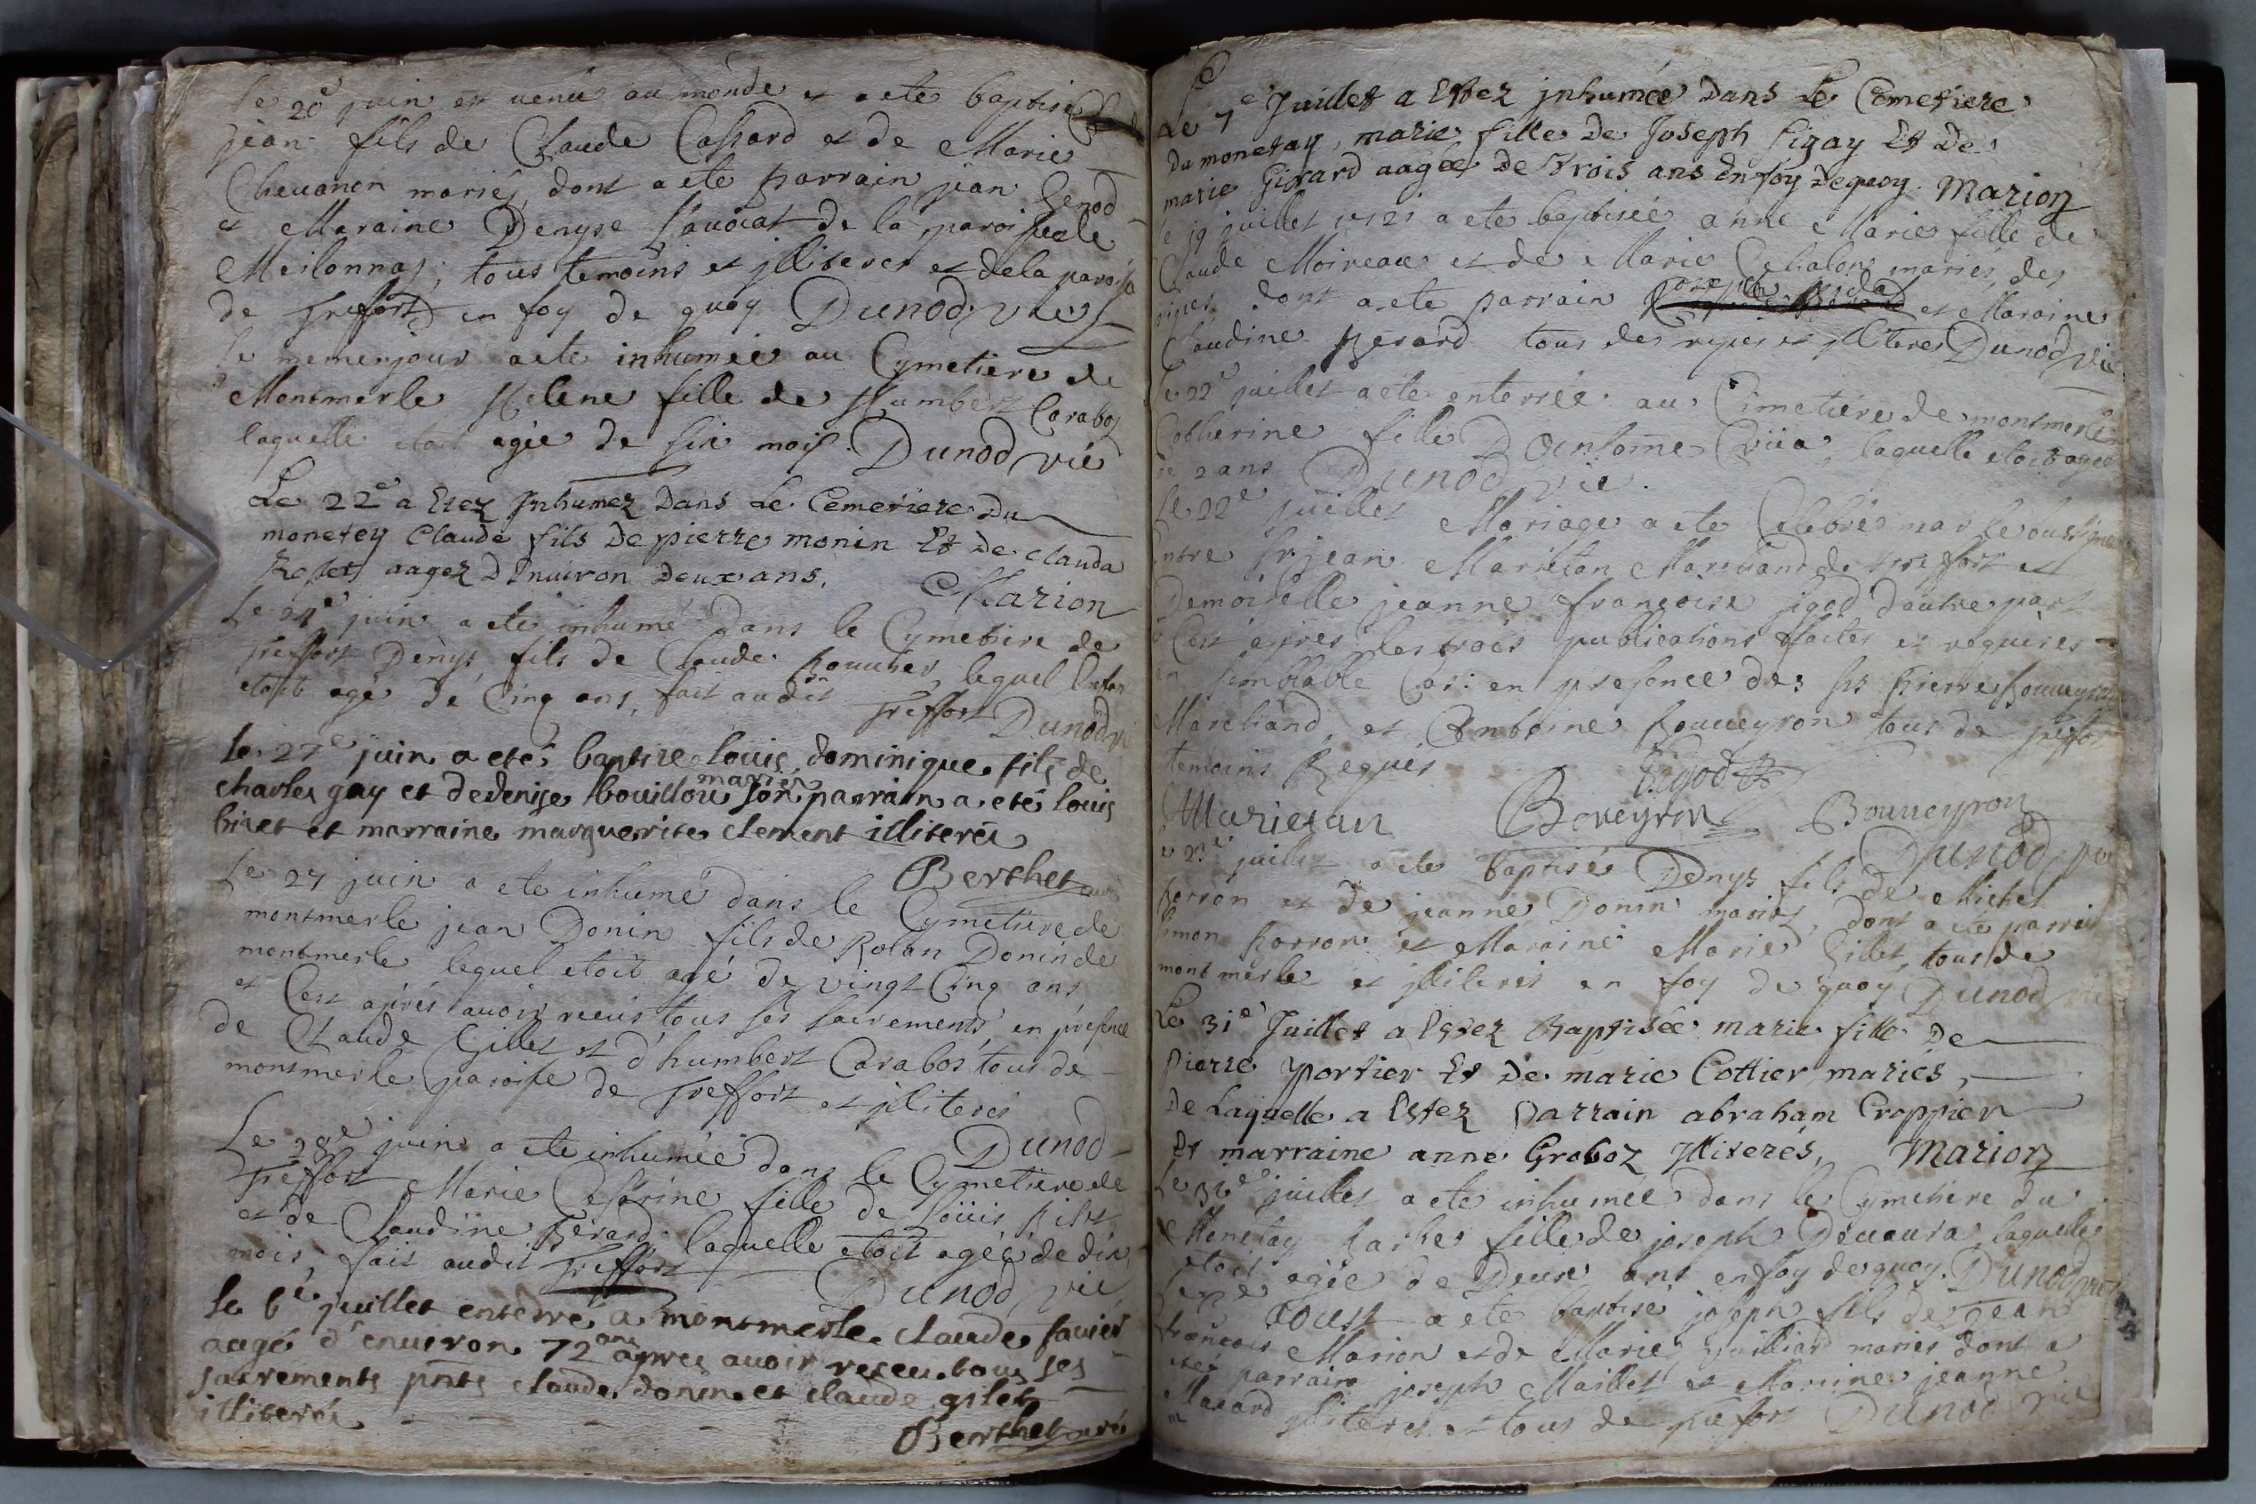 Le 20e juin est venu au monde et a ete baptisé
jean fils de Claude Cassard et de Marie
Chevanon mariés, dont a ete parrain jean Genod
et Maraine Denyse Lavocat de la paroisse de
Meilonnas, tous temoins et jlliteres et de la paroisse
de Treffort en foy de quoy Dunod vic
le mememjour a ete inhumée au Cymetiere de
Montmerle Helene fille de Humbert Carabos
laquelle etoit agée de six mois. Dunod vic
Le 22e a Etez Inhumez Dans Le Cemetiere Du
monetey Claude fils De pierre monin Et De clauda
aagez D Enuiron Deux ans. Marion
Le 24e juin a ete inhumé Dans le Cymetiere de
Treffort Denys fils de Claude Rouuier, lequel
etoit agé de Cinq ans, fait audit Treffort Dunod vi
le 27e juin a eté baptise louis dominique fils de
charles gay et de denise bouillou mariés son parrain a eté louis
biset et marraine marguerite clement illiterés
Berthet curé
Le 27 juin a ete inhumé dans le Cymetiere de
montmerle jean Donin fils de Rolan Donin de
montmerle lequel etoit agé de vingt Cinq ans
et C'est après avoir receus tous ses sacrements, en presence
de Claude Gillet et d'humbert Carabos tous de
montmerle paroisse de Treffort et jlliterés
Dunod
Le 28e juin a ete inhumée dans le Cymetiere de
Treffort Marie Cesarine fille de Loüis
et de Claudine Berard laquelle etoit agée de dix
mois, fait audit Treffort Dunod vic
le 6e juillet enterré a montmerle claude favier
aagé d'environ 72 ans apres avoir receu tous ses
sacrements pnts claude donin et claude gilet
illiterés
Berthet curé
Le 7e Juillet a Estez jnhumée Dans Le Cemetiere
Du monetay, marie fille De Joseph Pigay Et De
marie Girard aagée De Trois ans En foy Dequoy. Marion
le 19 juillet 1721 a ete baptisée anne Marie fille de
Claude Moireau et de Marie Chalon mariés, des
ripes, dont a ete parrain et Maraine
Claudine Berard tous des ripes et jlliteres Dunod vic
le 22e juillet a ete enterrée au Cimetiere de montmerle
Catherine fille D Antoine laquelle etoit agée
de 2 ans Dunod vic.
Le 22e juillet Mariage a ete Celebré par le
Entre Sr jean Marietan Marchand de Treffort et
Demoiselle jeanne françoise d'autre part
Cest après les trois publications faites et requises
en semblable Cas: en presence des Srs Pierre
Marchand, et Antoine Bouueyron tous de Treffort
temoins Requis
Marietan Boveyron Bouueyron
Dunod
le 23e juillet a ete baptisé Denys fils de Michel
Perron et de jeanne Donin mariés, dont a ete parrain
Simon Perron et Maraine Marie Gillet, tous de
montmerle et jlliterés en foy de quoy Dunod vic
Le 31e Juillet a Estez Baptisée marie fille De
Pierre Portier Et De marie Cottier mariés,
De Laquelle a Estez Parrain abraham Croppier
Et marraine anne Graboz Jlliterés, Marion
Le 31e juillet a ete inhumée dans le Cymetiere du
Monetay fille de joseph laquelle
etoit agée de Deux ans en foy de quoy. Dunod vic
aoust a ete baptisé joseph fils de jean
françois Marion et de Marie mariés dont a
eté parrain joseph Maillet et Maraine jeanne
jlliteres et tous de Treffort Dunod vic